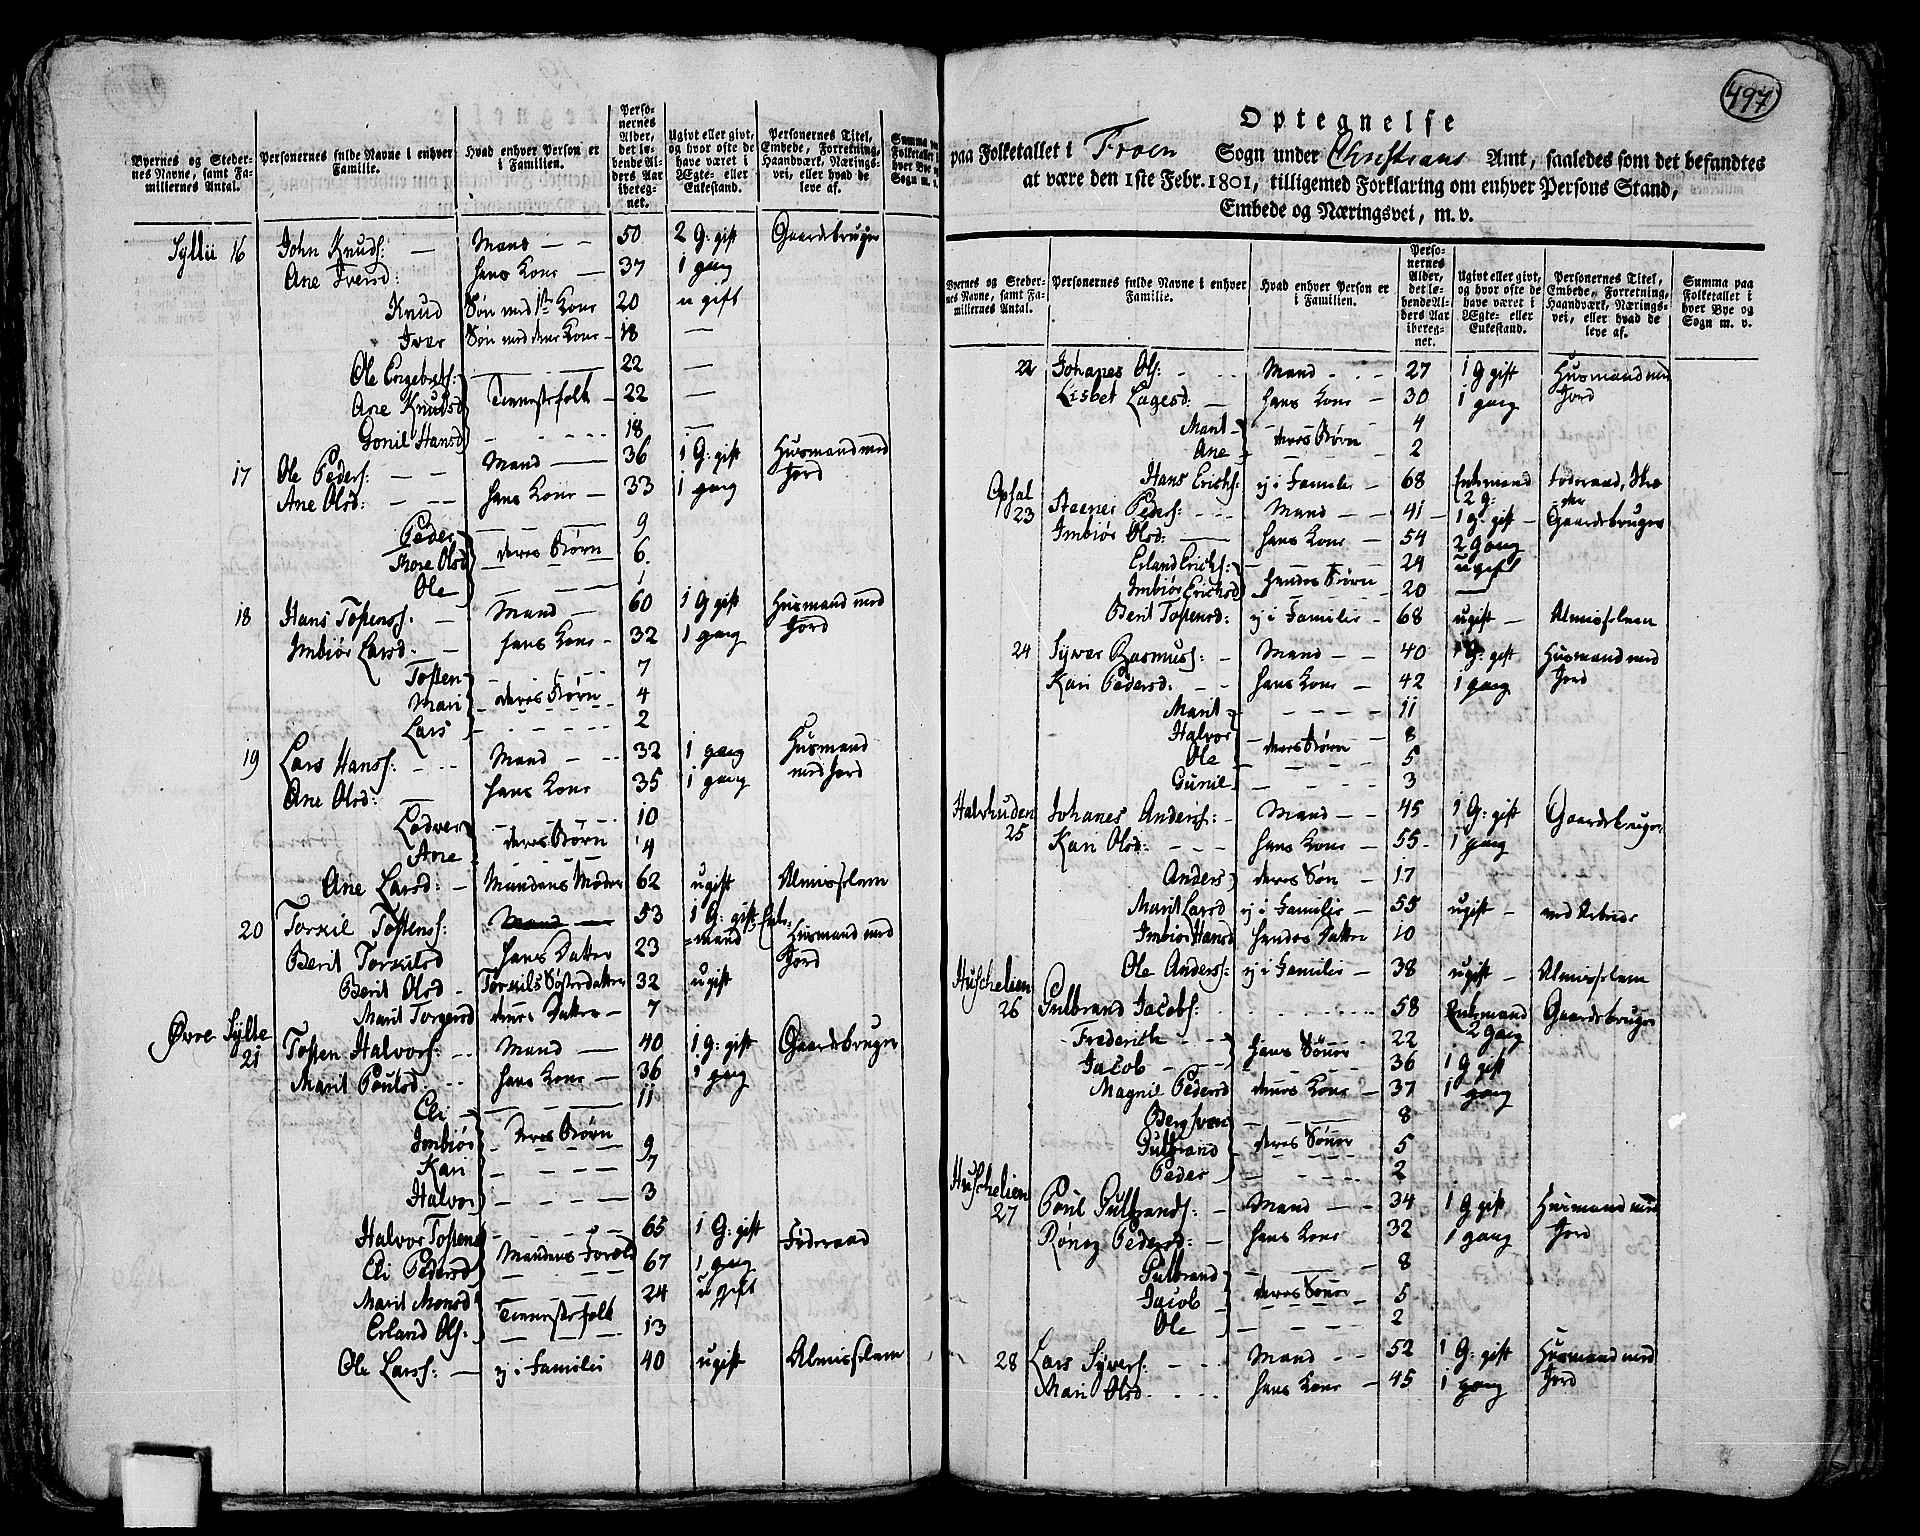 497
Byernes og Steder-nes Navne, samt Fa-milliernes Antal.
Personernes fulde Navne i enhver Familie.
Hvad enhver Person er i Familien.
Perso-nernes Alder, det le-bende Al-ders Aar iberegnet.
Ugivt eller givt, og hvor ofte de have været i Ægte- eller Enkestand.
Personernes Titel, Embede, Forretning, Haandværk, Nærings-vei, eller hvad de leve af.
Syltii 16 John Knuds: — Mand — 50 2 G: gift Gaardebruger
Ane Iversd: hans Kone — 37 1 gang
Knud Søn med 1ste Kone 20 ugift
Iver Søn med denne Kone 18 —
Ole Engebrets: 22 —
Ane Knudsd Tienestefolk 22 —
Gonil Hansd 18 —
17 Ole Peders: — Mand — 36 1 G: gift Husmand med
Ane Olsd: — hans Kone — 33 1 gang Jord
Peder 9
Thore Olsd deres Børn 6
Ole 1
18 Hans Tostenss: — Mand — 60 1 G gift Husmand med
Imbiør Larsd — hans Kone — 32 1 gang Jord
Tosten 7
Mari deres Børn 4
Lars 2
19 Lars Hanss: — Mand — 32 1 gang Husmand
Ane Olsd: — hans Kone 35 1 gang med Jord
Lodver 10
Ane deres Børn 4
Ane Larsd: — Mandens Moder 62 ugift Almisselem
20 Torkil Tostenss: Mand — 53 1 G: gift Enke-
Berit Torkilsd hans Datter 23 =mand Husmand med
Berit Olsd — Torkils Søsterdatter 32 ugift Jord
Marit Torgersd dennes Datter — 7
Øvre Sylte
21 Tosten Halvors: — Mand — 40 1 G: gift Gaardebruger
Marit Poulsd — hans Kone — 36 1 gang
Eli 11
Imbiør deres Børn 9
Kari 7
Halvor 3
Halvor Tostens 65 1 G: gift Føderaad
Eli Pedersd Mandens Foræld 67 1 gang
Marit Monsd 24 ugift
Erland Ols: Tienestefolk 13
Ole Larss: — ej i Familie 40 ugift Almisselem
Optegnelse
paa Folketallet i Froen Sogn under Christians Amt, saaledes som det befandtes
at være den 1ste Febr. 1801, tilligemed Forklaring om enhver Persons Stand,
Embede og Næringsvei, m. v.
Byernes og Steder-nes Navne, samt Fa-milliernes Antal.
Personernes fulde Navne i enhver Familie.
Hvad enhver Person er i Familien.
Perso-nernes Alder, det le-bende Al-ders Aar iberegnet.
Ugivt eller givt, og hvor ofte de have været i Ægte- eller Enkestand.
Personernes Titel, Embede, Forretning, Haandværk, Nærings-vei, eller hvad de leve af.
Summa paa Folketallet i hver Bye og Sogn m. v.
22 Johanes Ols: — Mand — 27 1 G gift Husmand med
Lisbet Lagesd: — hans Kone — 30 1 gang Jord
Marit 4
Ane deres Børn 2
Hans Erichs: ej i Familie — 68 Enkemand 2 g: Føderaad,
Opsal
23 Steener Peders: — Mand — 41 1 g: gift — Gaardebruger
Imbiør Olsd: hans Kone — 54 2 Gang
Erland Erichs: 24 ugift
Imbiør Erichsd hendes Børn 20 —
Berit Tostensd: ej i Familie — 68 ugift — Almisselem
24 Syver Rasmuss: — Mand — 40 1 G: gift Husmand med
Kari Pedersd: — hans Kone — 42 1 gang Jord
Marit 11
Halvor 8
Ole deres Børn 5
Gunil 3
Halvhuden
25 Johanes Anders: — Mand — 45 1 G: gift Gaardebruger
Kari Olsd: — hans Kone — 55 1 gang
Anders deres Søn — 17
Marit Larsd ej i Familie — 55 ugift — ved Arbeide
Imbiør Hansd hendes Datter 10
Ole Anderss: ej i Familie — 38 ugift — Almisselem
Huschelien
26 Gulbrand Jacobs: 58 Enkemand Gaardebruger
Frederich — 22 2 gang
Jacob — hans Sønner 36 1 G gift
Magnil Pedersd dennes Kone — 37 1 gang
Bergsven 8
Gulbrand deres Sønner 5
Peder 2
Huschelien
27 Poul Gulbrands: Mand — 34 1 G gift Husmand med
Rønog Pedersd: — hans Kone — 32 1 gang Jord
Gulbrand 8
Jacob deres Sønner 5
Ole 2
28 Lars Syvers: — Mand — 52 1 G: gift Husmand med
Mari Olsd — hans Kone — 45 1 gang Jord